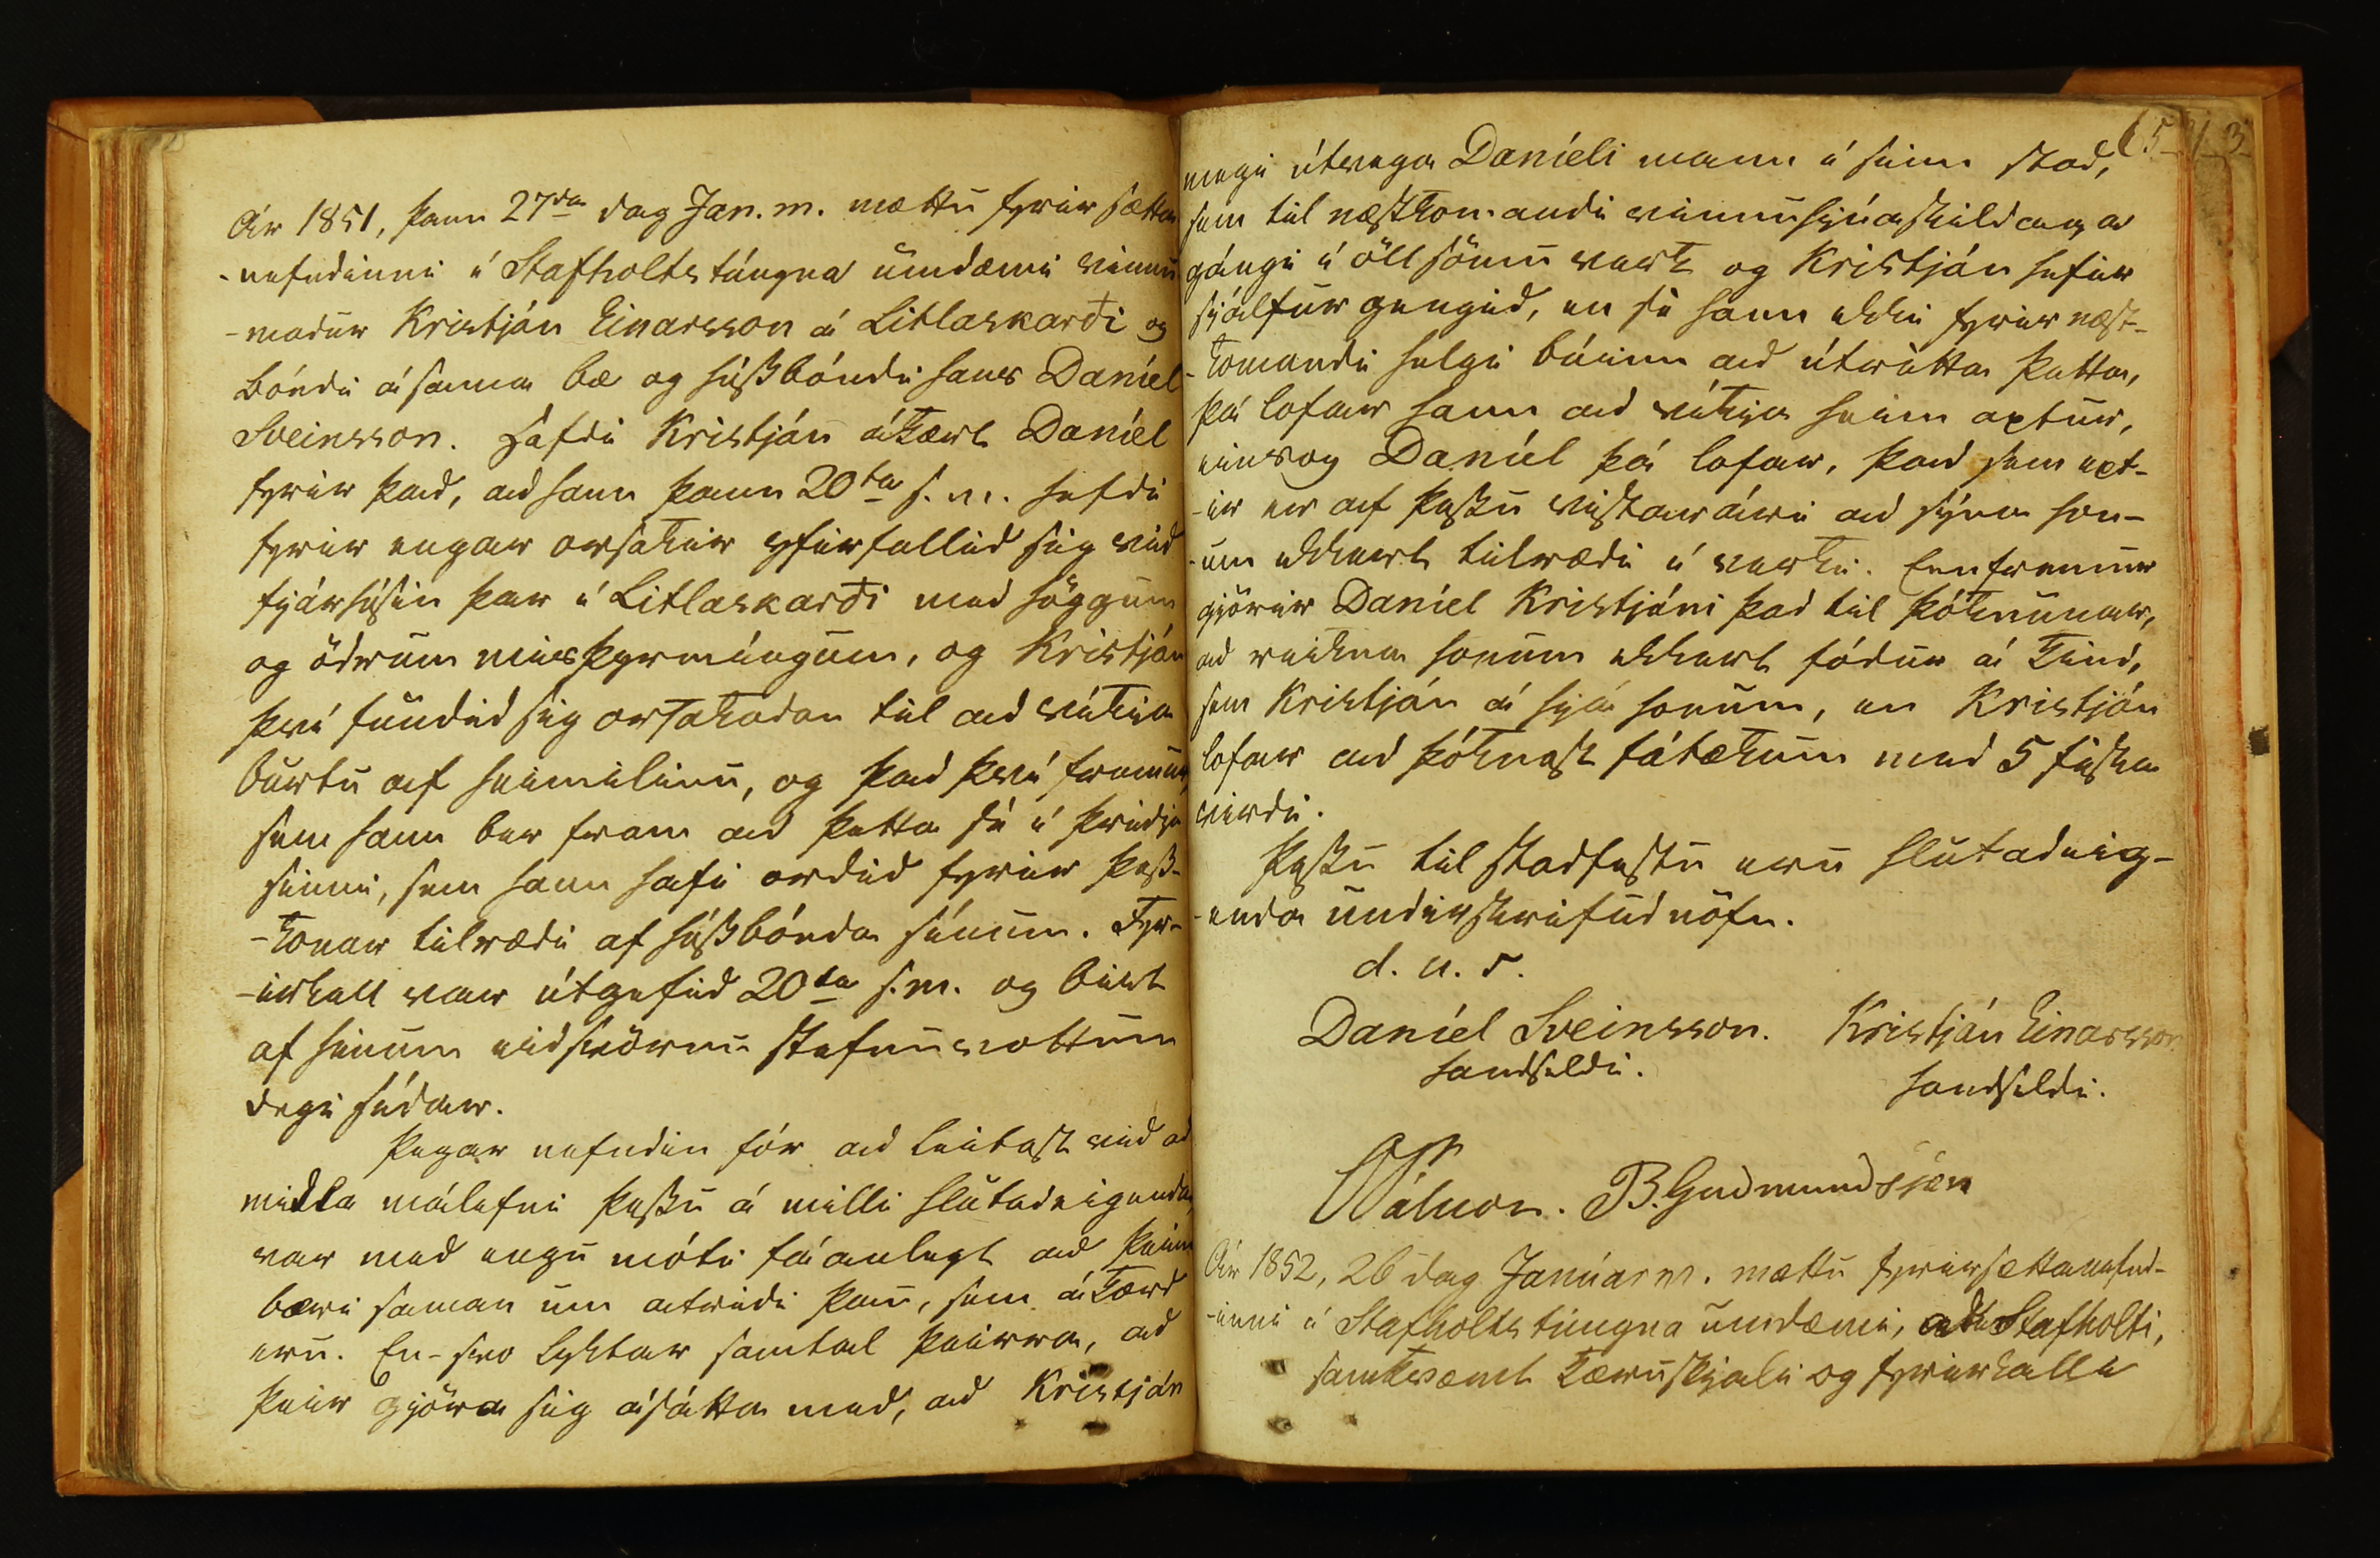 Ár 1851, þann 27da dag Jan. m. mættu fyrir sætta
-nefndinni í Stafholtstúngna umdæmi vinnu
-madur Kristján Einarsson á Litlaskarði og
bóndi á sama bæ og húsbóndi hans Daníel
Sveinsson. Hafdi Kristján ákært Daníel
fyrir þad, ad hann þann 20ta s. m. hefdi
fyrir engar orsakir yfirfallid sig vid
fjárhúsin þar í Litlaskarði med höggum
og ödrum misþyrmíngum, og Kristján
því fundid sig orsakadan til ad víkja
burtu af heimilinu, og þad því fremur,
sem hann ber fram ad þetta sé í þridja
sinni, sem hann hafi ordid fyrir þess-
-konar tilrædi af húsbónda sínum. Fyr-
-irkall var útgefid 20ta s.m. og birt
af hinum eidsvörnu stefnuvottum
degi sídar.
Þegar nefndin fór ad leitast vid ad
midla málefni þessu á milli hlutadeigenda,
var med engu móti fáanlegt ad þeim
bæri saman um atridi þau, sem ákærd
eru. En-svo lyktar samtal þeirra, ad
þeir gjöra sig ásátta med, ad Kristján
65
megi útvega Daníeli mann í sinn stad,
sem til næstkomandi vinnuhjúaskildaga
gángi í öll sömu verk og Kristján hefur
sjálfur gengid, en sé hann ekki fyrir næst-
-komandi helgi búinn ad útrétta þetta,
þá lofar hann ad víkja heim aptur,
einsog Daníel þá lofar, þad sem ept-
-ir er af þessu vistarári ad sýna hon-
-um ekkert tilrædi í verki. Ennfremur
gjörir Daníel Kristjáni þad til þóknunar,
ad reikna honum ekkert fódur á kind,
sem Kristján á hjá honum, en Kristján
lofar ad þóknast fátækum med 5 fiska
virdi.
Þessu til stadfestu eru hlutadeig-
-enda undirskrifud nöfn.
d. u. s.
Daníel Sveinsson. Kristján Einarsson
handsaldi. handsaldi.
B. Gudmundsson
Ár 1852, 26 dag Janúar m. mættu fyrir sættanefnd-
-inni í Stafholtstúngna umdæmi, ad Stafholti,
samkvæmt kæruskjali og fyrirkalli